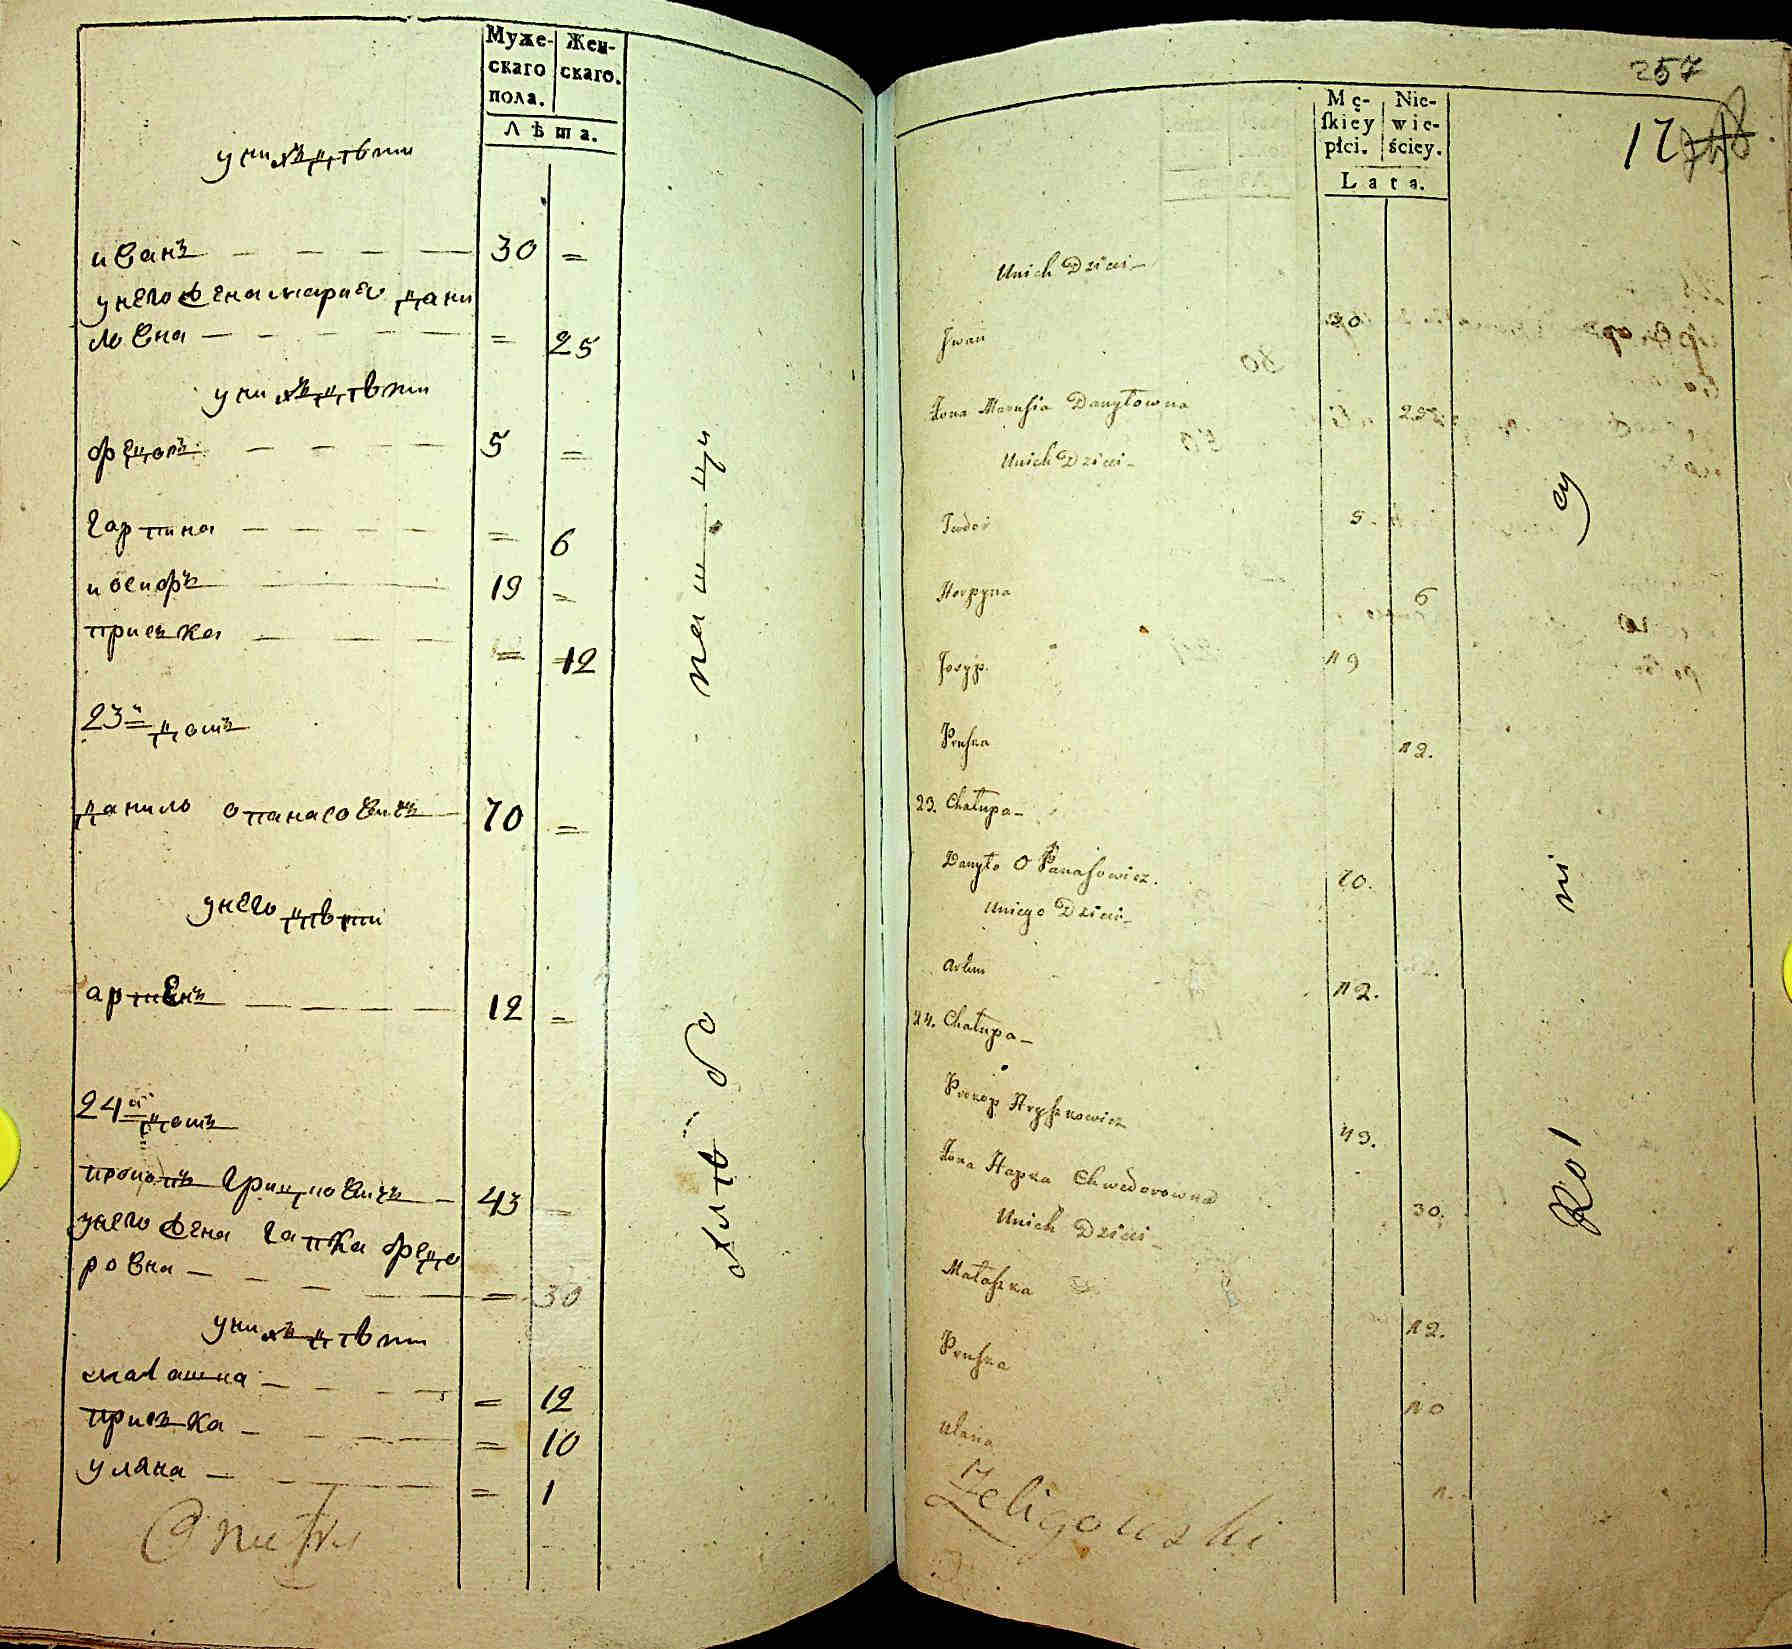 Муже-
скаго
пола.
Жен-
скаго.
Лѣта.
у нихъ дѣти
иванъ 30 =
у него жена мария дани
ловна = 25
у нихъ дѣти
федоръ 5 =
гарпина = 6
иосифъ 19 =
приська = 12
23й домъ
данило опанасовичъ 70 =
у него дѣти
артемъ 12 =
24й домъ
прокопъ грицковичъ 43 =
у него жена гапка федо
ровна = 30
у нихъ дѣти
малашка = 12
приська = 10
уляна = 1
257
12
Mę-
ſkiey
płci.
Nie-
wie-
ściey.
Lata.
Unich Dzieci
Jwan 30
Żona Marusia Danyłowna 25
Unich Dzieci
Fiedor 5.
Horpyna 6
Josyp. 19
Pruska 12.
23. Chałupa
Danyło O Panasowicz. 70.
Uniego Dzieci
Artem 12.
24. Chałupa
Prokop Hryszkowicz 43.
Żona Hapka Chwedorowna 30.
Unich Dzieci
Małaszka 12.
Pruska 10
Ulana 1.
Żeligowski